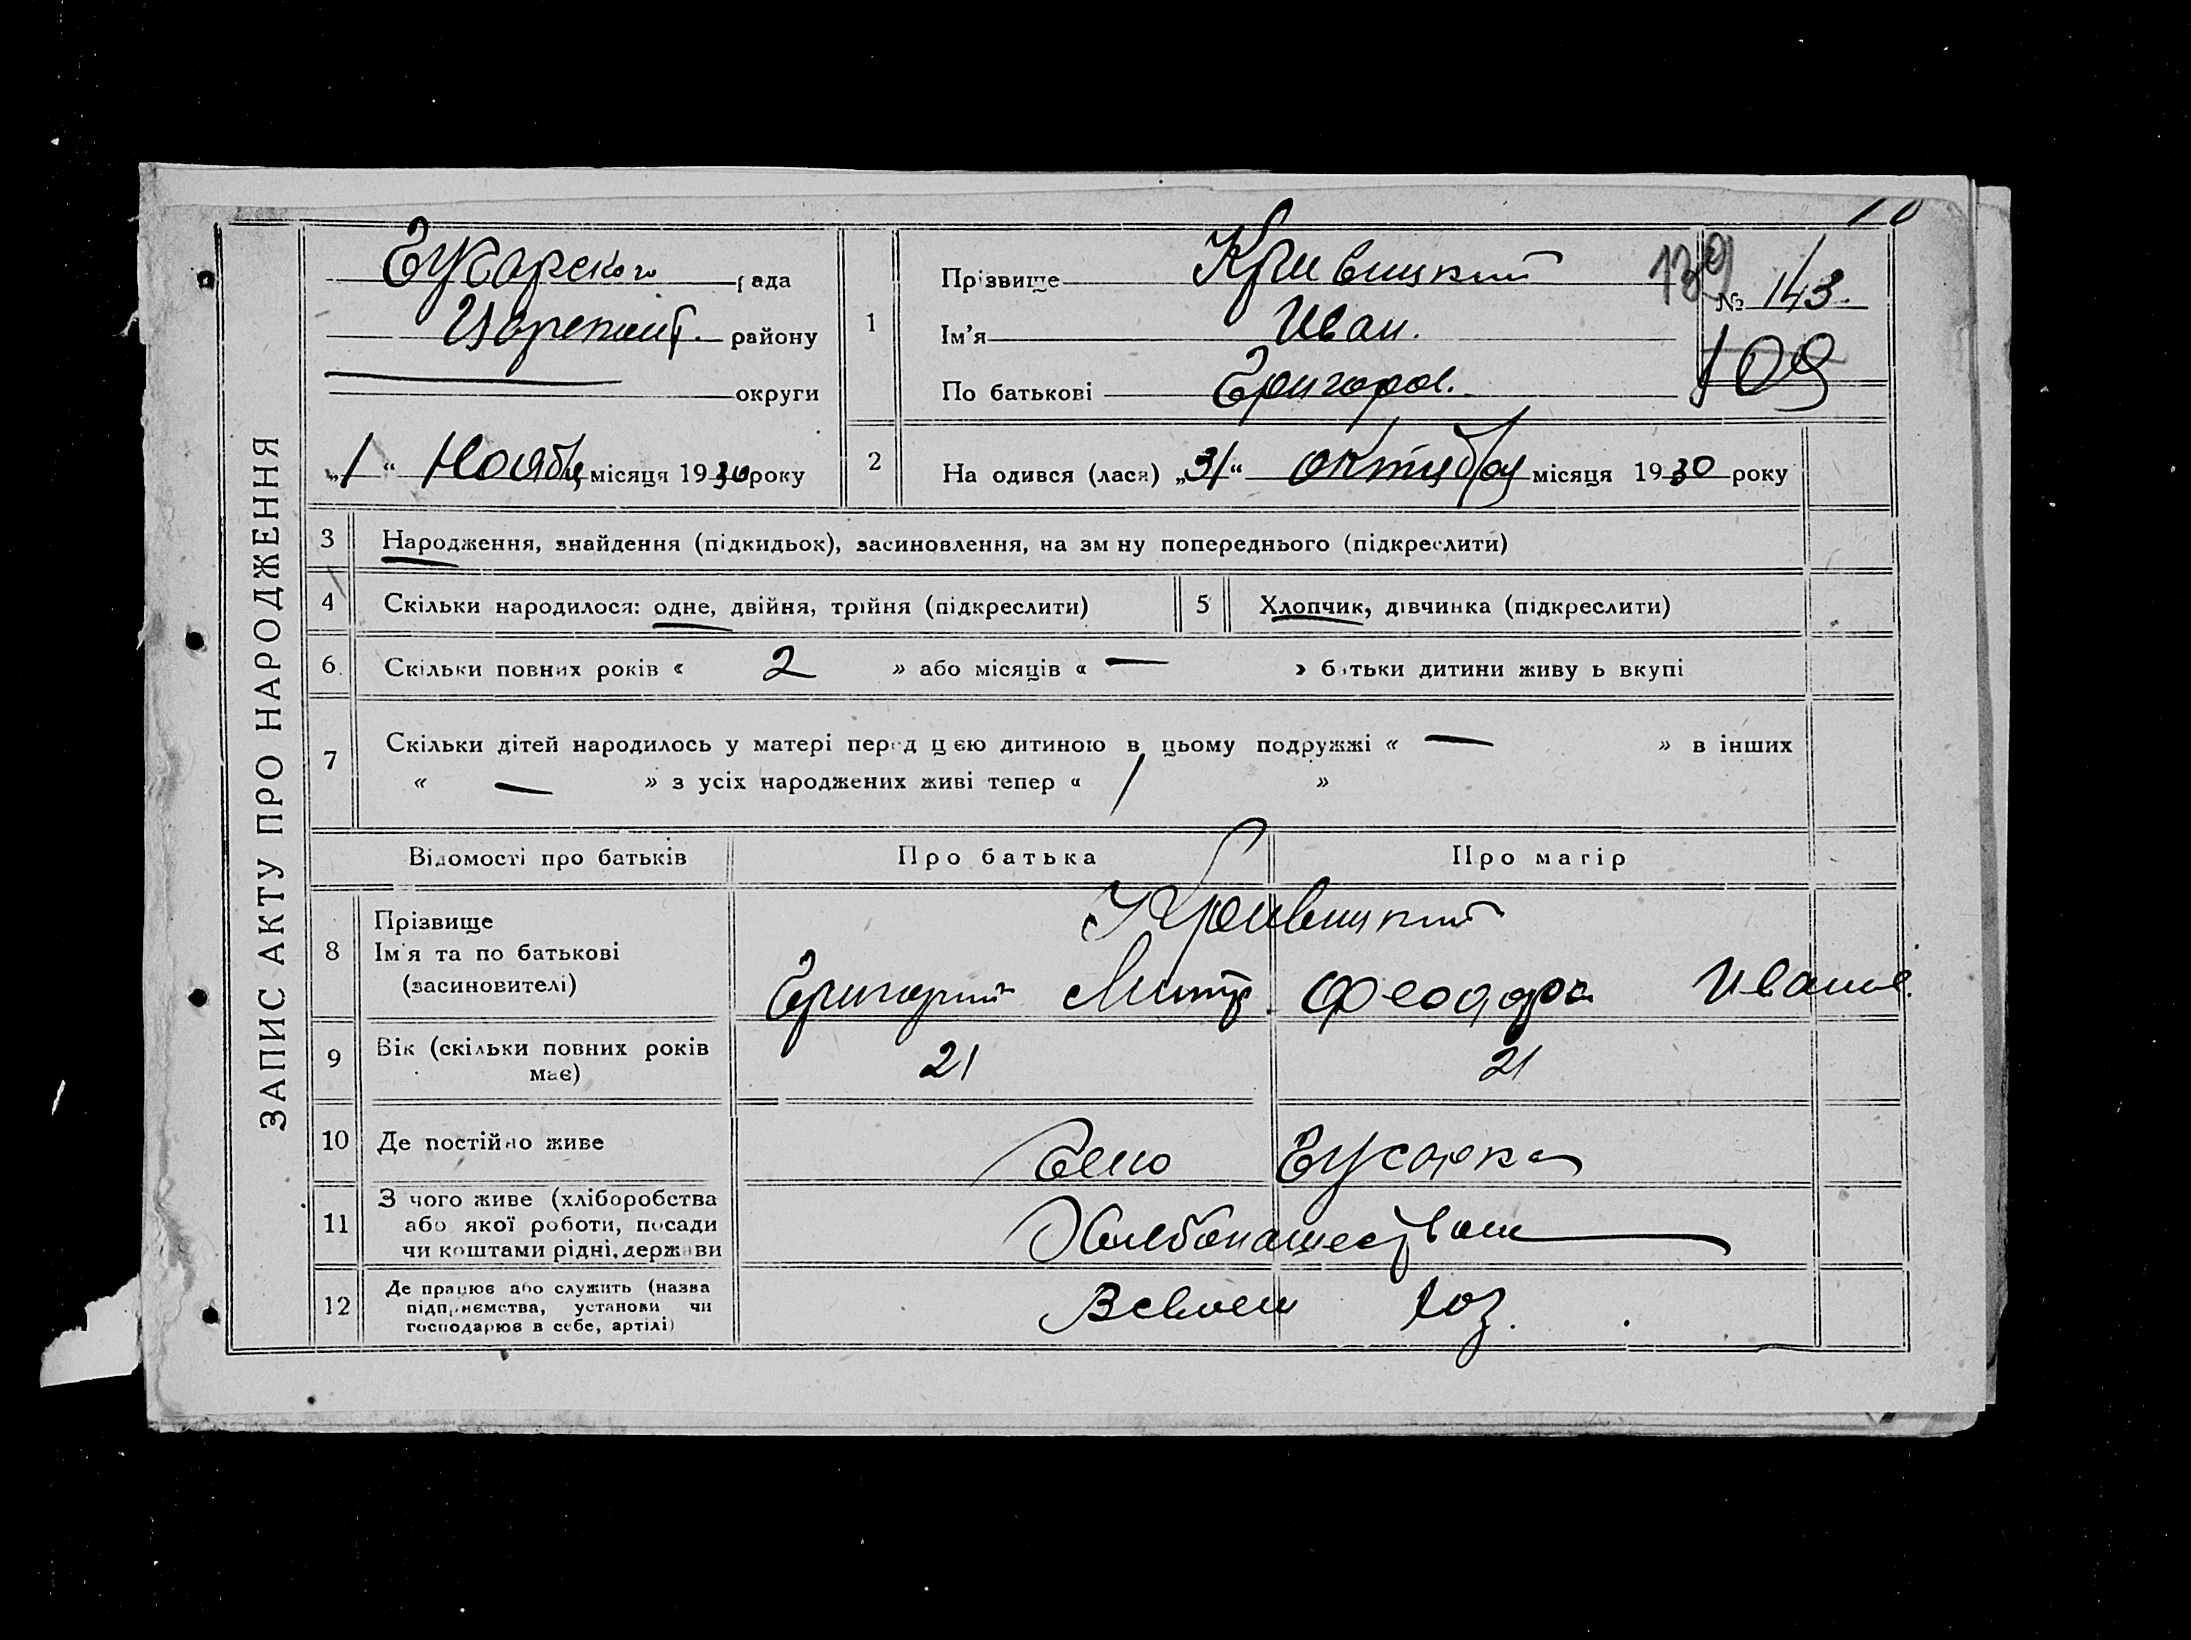 ЗАПИС АКТУ ПРО НАРОДЖЕННЯ
Гусарского рада
району
округи
„1“ Ноября місяця 1930 року
1 Прізвище Кривицкий
Ім’я Иван.
По батькові Григоров.
139
№ 143.
109
2 Народився (лася) „31“ октября місяця 1930 року
3 Народження, знайдення (підкидьок), засиновлення, на зміну попереднього (підкреслити)
4 Скільки народилося: одне, двійня, трійня (підкреслити) 5 Хлопчик, дівчинка (підкреслити)
6 Скільки повних років « 2 » або місяців « — » батьки дитини живуть вкупі
7 Скільки дітей народилось у матері перед цією дитиною в цьому подружжі « — » в інших
« — » з усіх народжених живі тепер « 1 »
Відомості про батьків Про батька Про матір
8 Прізвище
Ім’я та по батькові
(засиновителі)
Кривицкий
Григорий Митр. Феодора Иванов.
9 Вік (скільки повних років
має)
21 21
10 Де постійно живе Село Гусарка
11 З чого живе (хліборобства
або якої роботи, посади
чи коштами рідні, держави
Хлебопашеством
12 Де працює або служить (назва
підприємства, установи чи
господарює в себе, артілі)
В своем хоз.